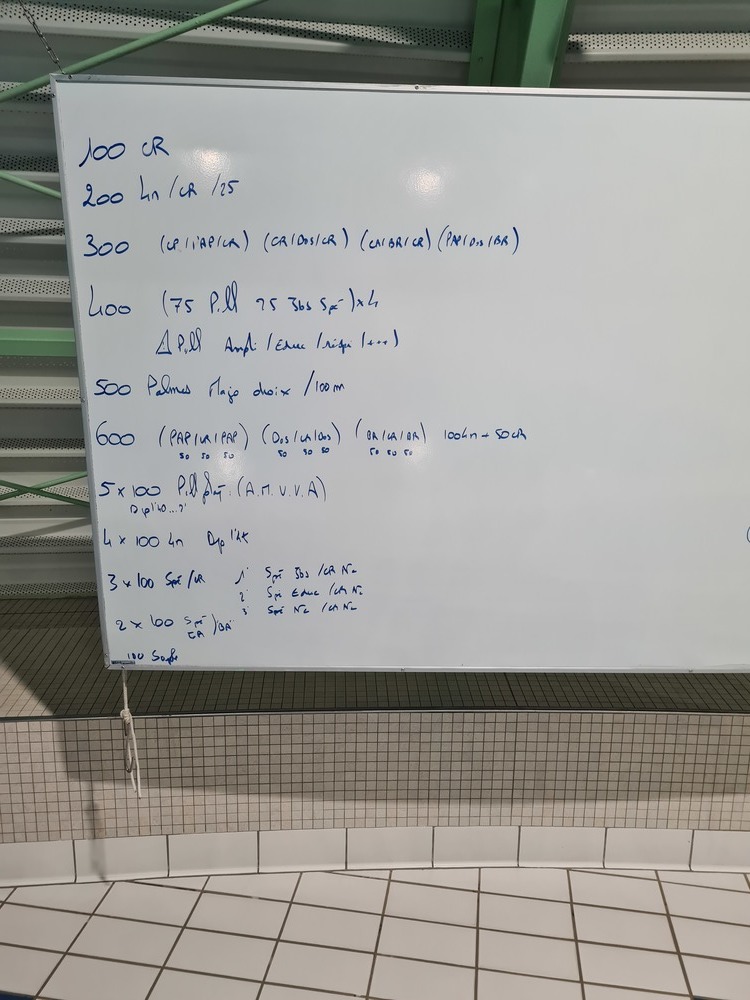 100 CR
200 4n / CR / 25
300 (CR / PAP / CR) (CR / Dos / CR) (CR / BR / CR) (PAP / Dos / BR)
400 (75 Pull 25 Jbs Spé) x 4
Δ Pull Ampli / Educ / / ...)
500 Palmes Majo choix / 100m
600 (PAP / CR / PAP) (Dos / CR / Dos) (BR / CR / BR) 100 4n + 50 CR
50 50 50 50 50 50 50 50 50
5 x 100 Pull (A.M.V.V.A)
4 x 100 4n Dep 1'45
3 x 100 Spé / CR 1' Spé Jbs / CR Nc
2' Spé Educ / CR Nc
3' Spé Nc / CR Nc
2 x 100 Spé / BR
CR
100 Souple